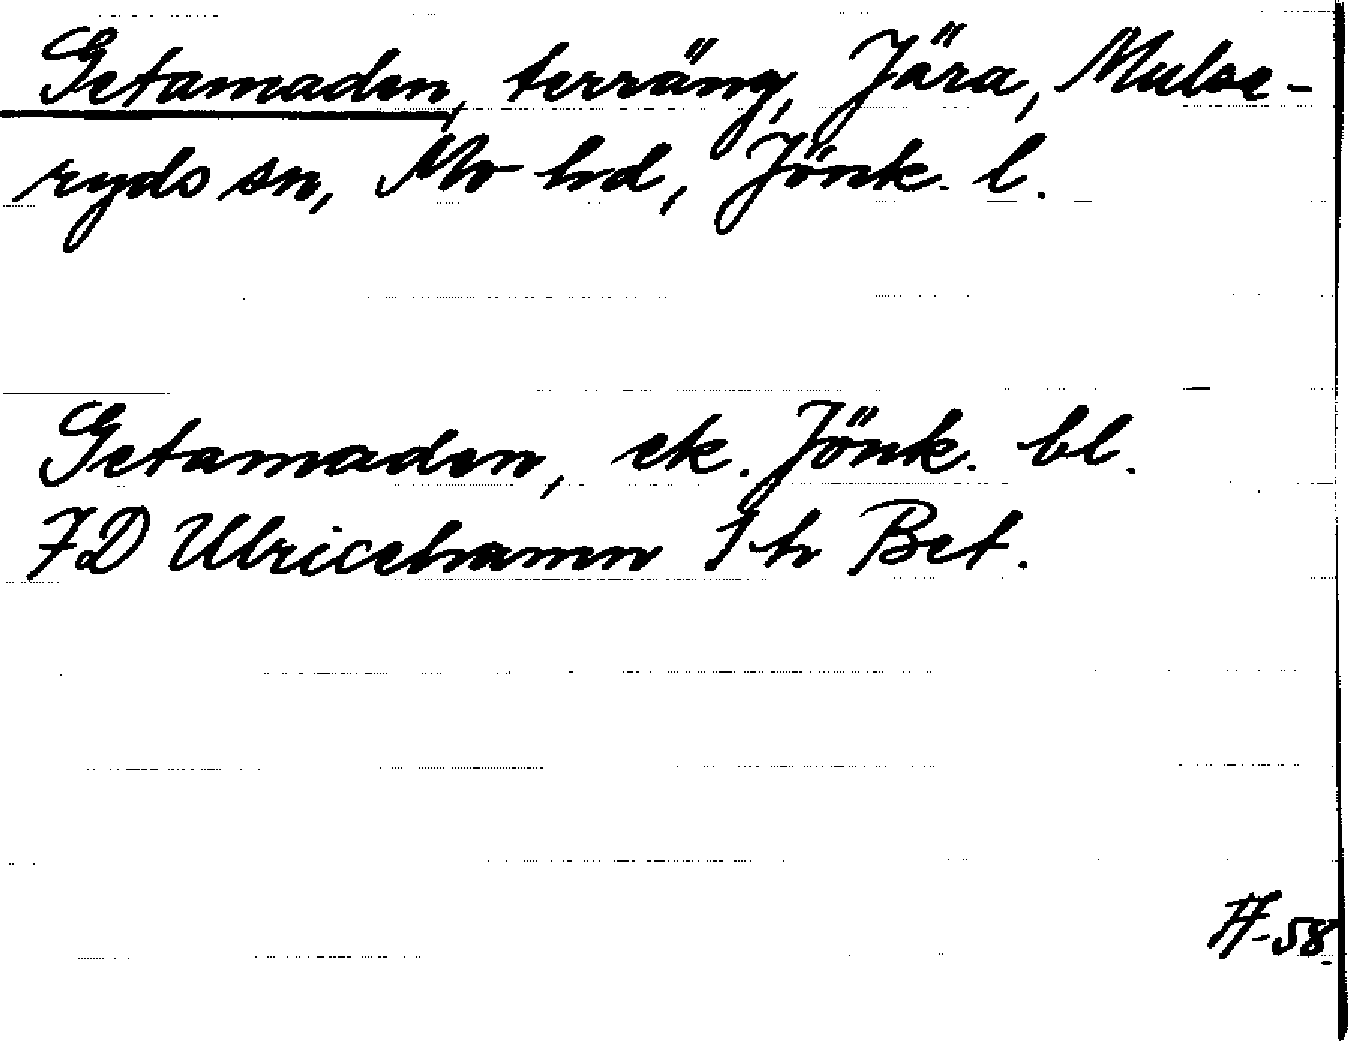 Getamaden, terräng, Jära, Mulse-
ryds sn, Mo hd, Jönk. l.
Getamaden, ek. Jönk. bl.
7D Ulricehamn 1 h Bet.
-58